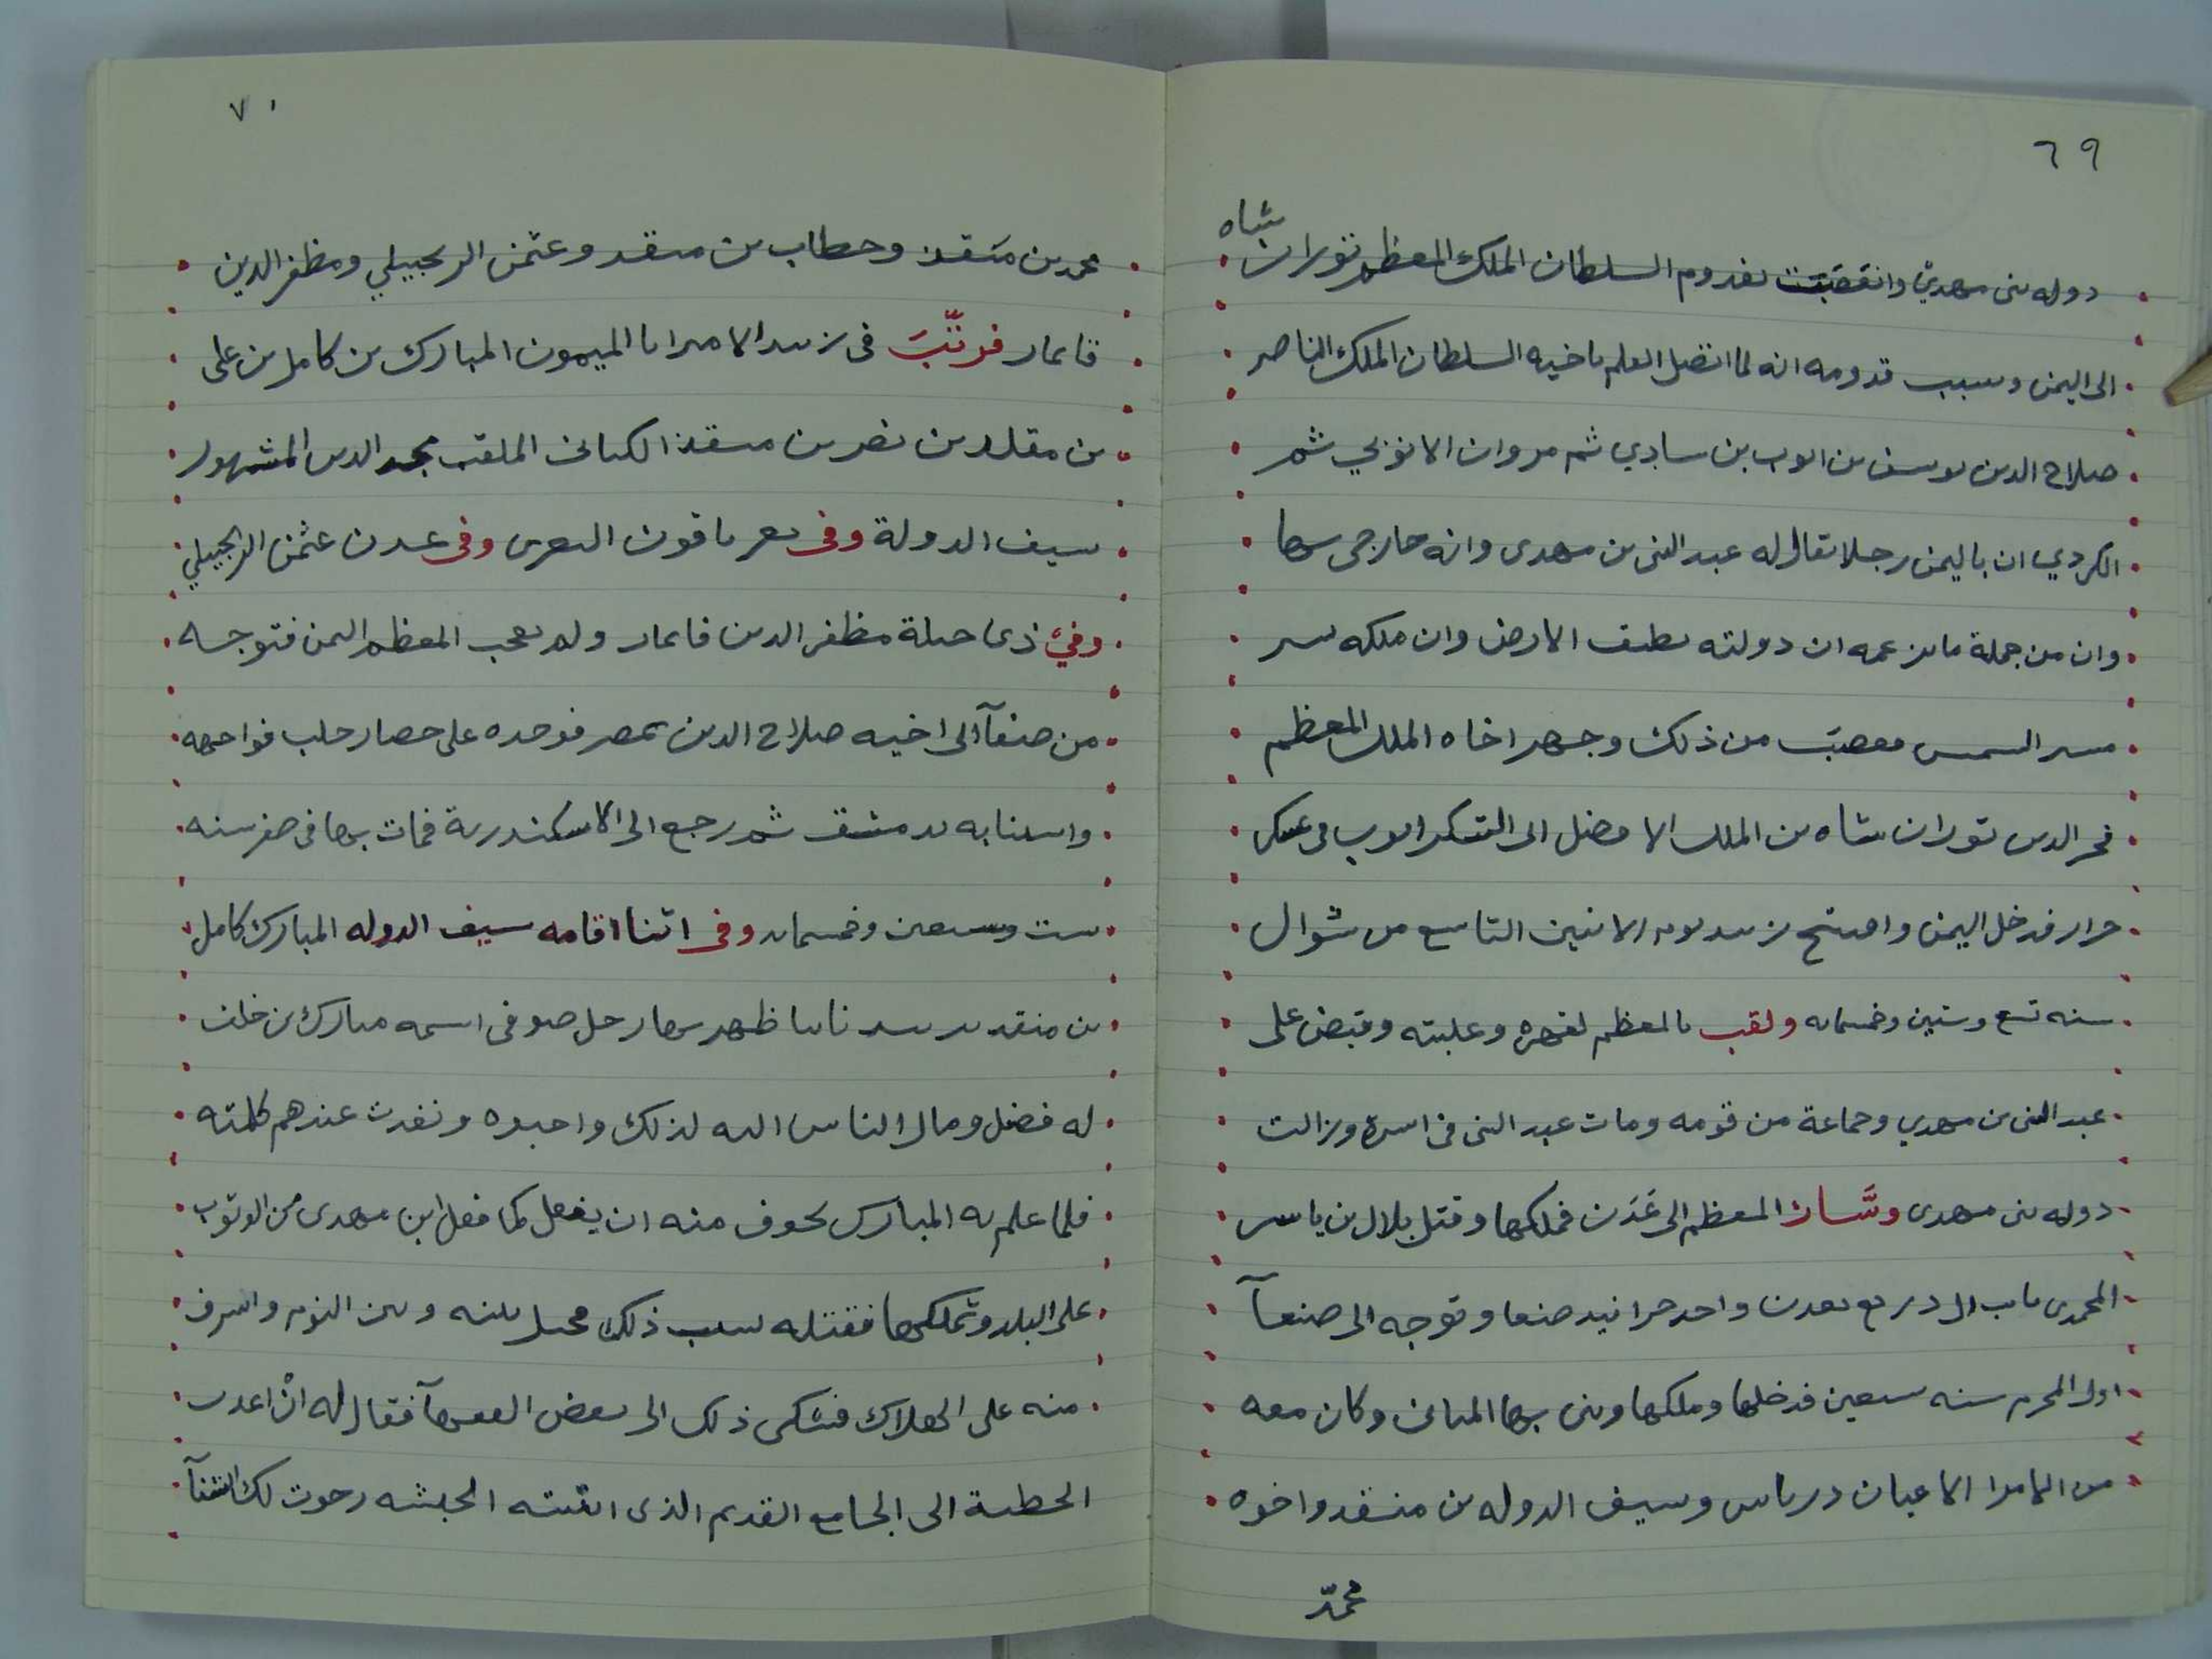 ٦٩
شاه
دوله بنى مهديّ وانقضت بقدوم السلطان الملك المعظم توران
الى اليمن وسبب قدومه انه لما اتصل العلم باخيه السلطان الملك الناصر
صلاح الدين يوسف بن ايوب بن سادي ثم مروان الانوبي ثم
الكردي ان باليمن رجلا يقال له عبد النبى بن مهدى وانه خارجى بها
وان من جملة ما يزعمه ان دولته تطبق الارض وان ملكه يسير
مسير الشمس فغضب من ذلك وجهر اخاه الملك المعظم
فخر الدين توران شاه بن الملك الافضل ابى الشكر ايوب فى عسكر
جرار فدخل اليمن وافتتح زبيد يوم الاثنين التاسع من شوال
سنه تسع وستين وخمسمايه ولقب بالمعظم لقهره وغلبته وقبض على
عبد النبى بن مهدي وجماعة من قومه ومات عبد النبى فى اسره وزالت
دوله بنى مهدى وسَار المعظم الى عَدَن فملكها وقتل بلال بن ياسر
المحمدى نايب ال دريع بعدن واحد حرانيد صنعا وتوجه الى صنعآ
اول المحرم سنه سبعين فدخلها وملكها وبنى بها المبانى وكان معه
من الامرا الاعيان درباس وسيف الدوله بن منقد واخوه
محمّد
٧٠
محمد بن منقذ وحطاب بن منقد وعثمن الزنجبيلي ومظفر الدين
قايماز فرتّبَ فى زبيد الامير ابا الميمون المبارك بن كامل بن على
بن مقلد بن نصر بن منقذ الكنانى الملقب مجد الدين المشهور
سيف الدولة وفى تعز ياقوت التعزى وفى عدن عثمن الزنجبيلي
وفي ذى جبلة مظفر الدين قايماز ولم يعجب المعظم اليمن فتوجه
من صنعآ الى اخيه صلاح الدين بمصر فوجده على حصار حلب فواجهه
واستنابه بدمشق ثم رجع الى الاسكندرية فمات بها فى صفر سنه
ست وسبعين وخمسمايه وفى اثنا اقامه سيف الدوله المبارك كامل
بن منقد بزبيد نايبا ظهر بها رجل صوفى اسمه مبارك بن خلف
له فضل ومال الناس اليه لذلك واحبوه ونفدت عندهم كلمته
فلما علم به المبارك تخوف منه ان يفعل كما فعل ابن مهدى من الوثوب
على البلد وتملكها فقتله بسبب ذلك فحيل بينه وبين النوم واشرف
منه على الهلاك فشكى ذلك الى بعض الفقهآ فقال له انْ اعدت
الخطبة الى الجامع القديم الذى ابتنته الحبشه رجوت لك الشفآ